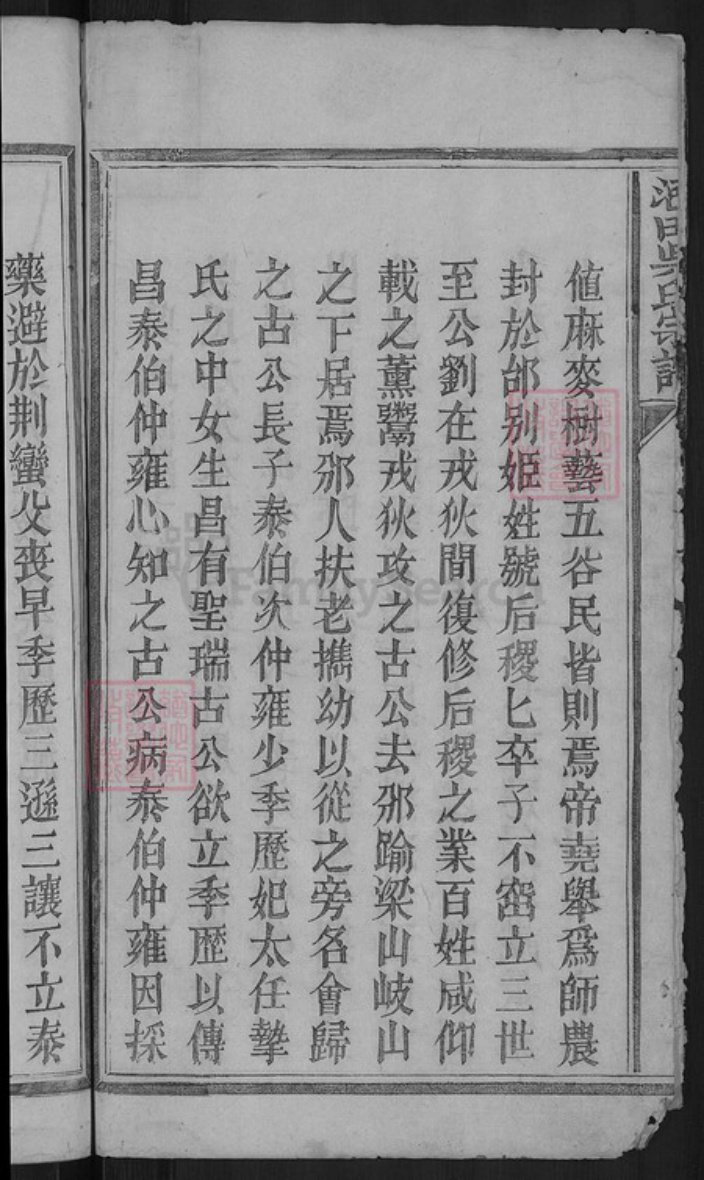 吳氏宗譜
値麻麥樹藝五谷民皆則焉帝堯舉爲師農
封於邰别姬姓號后稷匕卒子不窋立三世
至公劉在戎狄間復修后稷之業百姓咸仰
載之薰鬻戎狄攻之古公去邠踰梁山岐山
之下居焉邠人扶老擕幼以從之旁名會歸
之古公長子泰伯次仲雍少季歷妃太任摯
氏之中女生昌有聖瑞古公欲立季歷以傳
昌泰伯仲雍心知之古公病泰伯仲雍因採
藥避於荆蠻父喪早季歷三遜三讓不立泰
FamilySearch